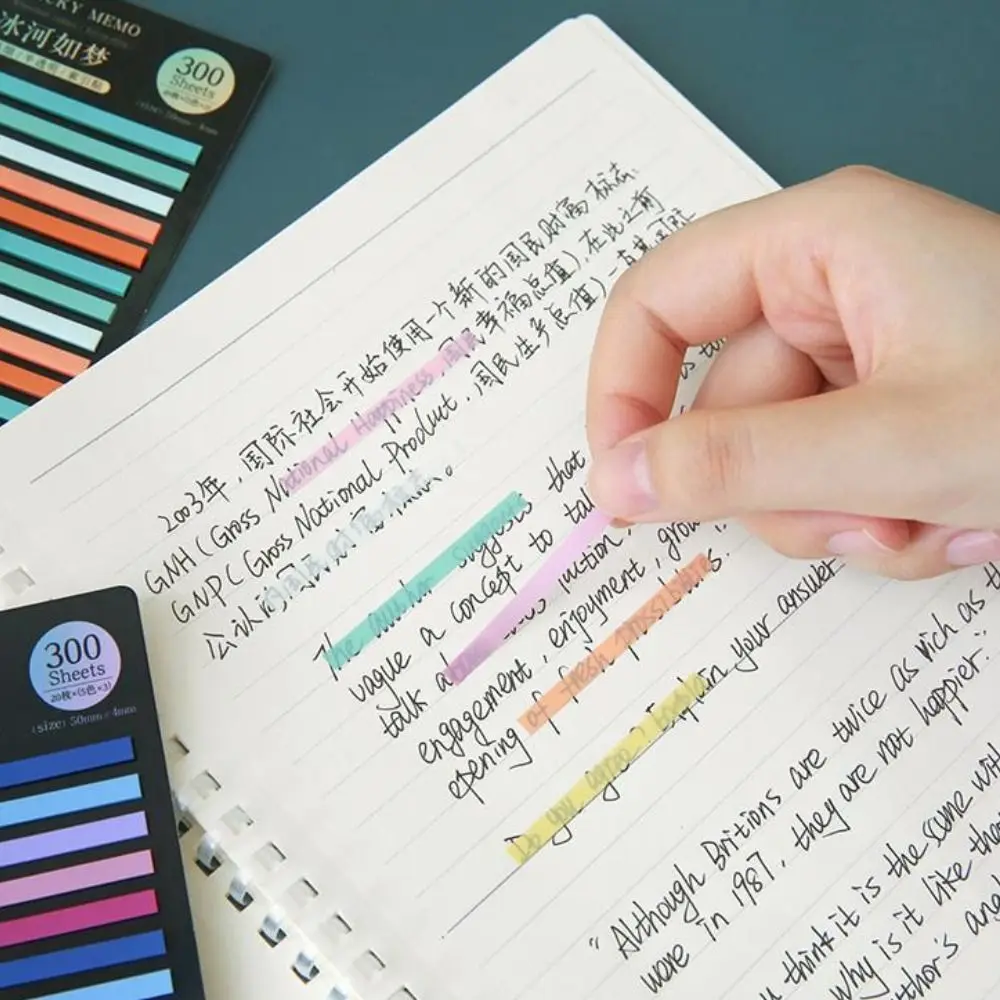 CKY MEMO
冰河如梦
300
Sheets
2003年,国际社会开始使用一个新的国民财富标志.
GNH (Gross National Happiness,国民幸福总值),在此之前
GNP (Gross National Product,国民生产总值)一直是
公认的国民财富标志。
The author suggests that
vague a concept to
talk about
engagement, enjoyment,
opening of fresh possibilities.
Do you agree? Explain your answer
"Although Britions are twice as rich as
ware in 1987, they are not happier."
think it is the same with
Why is it like
300
Sheets
20枚×(5色×3)
(size) 50mm×4mm